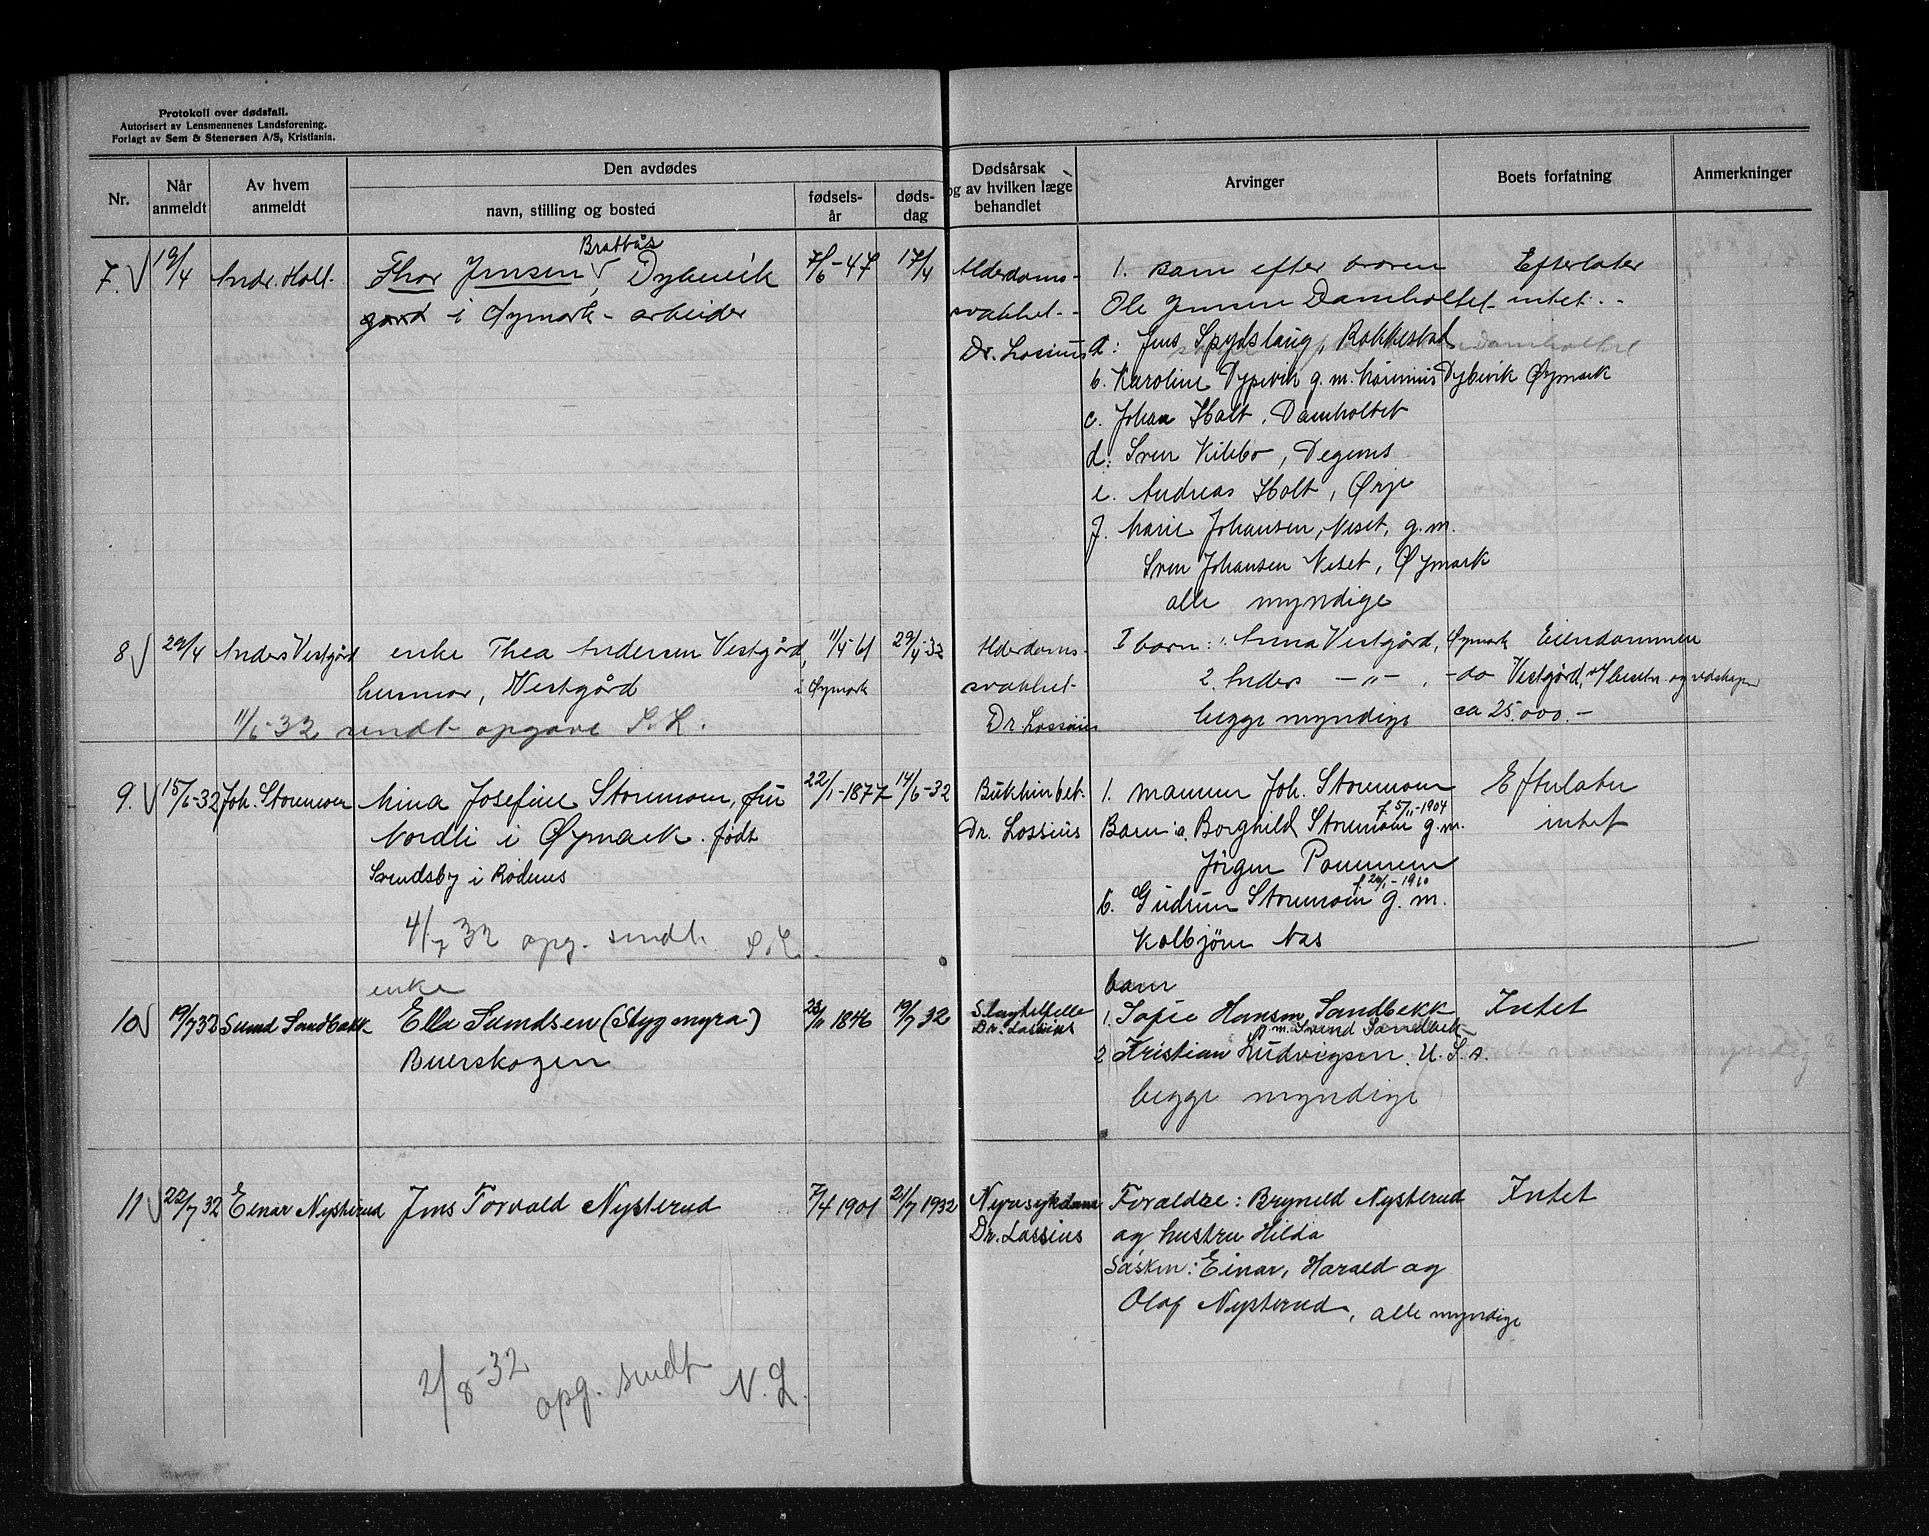 Protokoll over dødsfall.
Autorisert av Lensmennenes Landsforening.
Forlagt av Sem & Stenersen A/S, Kristiania.
Nr.
Når anmeldt
Av hvem anmeldt
Den avdødes
navn, stilling og bosted
fødsels-år
døds-dag
Dødsårsak
og av hvilken læge
behandlet
Arvinger
Boets forfatning
Anmerkninger
7. 19/4 Andr. Holt. Thor Jensen, Bratbås Dybevik 7/6-47 17/4 Alderdoms- 1. barn efter broren Efterlater
gård i Øymark - arbeider svakhet- Ole Jensen Damholtet intet.-
Dr. Lossius a: Jens Spydslaug, Rakkestad
b. Karoline Dypevik g.m. Marinius Dybevik Øymark
c. Johan Holt, Damholtet
d: Sven Kilebo, Degernes
e. Andreas Holt, Ørje
f. Marie Johansen, Neset, g.m.
Sven Johansen Neset, Øymark
alle myndige
8 29/4 Anders Vestgård enke Thea Andersen Vestgård, 11/4 61 29/4-32 Alderdoms- I barn: 1. Anna Vestgård, Øymark Eiendommen
husmor, Vestgård i Øymark svakhet- 2. Anders -"- , -do- Vestgård, m/ besetn. og redskaper
11/6-32 sendt opgave Dr. Lossius begge myndige ca 25.000.-
9. 15/6-32 Joh. Storemoen Mina Josefine Storemoen, fru 22/1-1877 14/6-32 Bukhinbet. 1. mannen Joh. Storemoen Efterlater
Nordli i Øymark. født Dr. Lossius Barn: a. Borghild Storemoen f. 5/11-1904 g.m. intet
Svendsby i Rødenes Jörgen Pommeren
b. Gudrun Storemoen g.m.
4/7 32 opg. sendt. Kolbjörn Nas
enke barn
10 19/7 32 Svend Sandbækk Ella Svendsen (Stygmyra) 1846 19/7 32 Slagtilfelle 1. Sofie Hansen Sandbekk Intet
Dr. Lossius g.m. Svend Sandbek
Buerskogen 2 Kristian Ludvigsen U.S.A.
begge myndige
11 22/7 32 Einar Nysterud Jens Torvald Nysterud 7/4 1901 21/7 1932 Nyresykdom Foreldre: Brynild Nysterud Intet
Dr. Lossius og hustru Hilda
Søsken: Einar, Harald og
Olaf Nysterud, alle myndige
2/8-32 opg. sendt N.L.